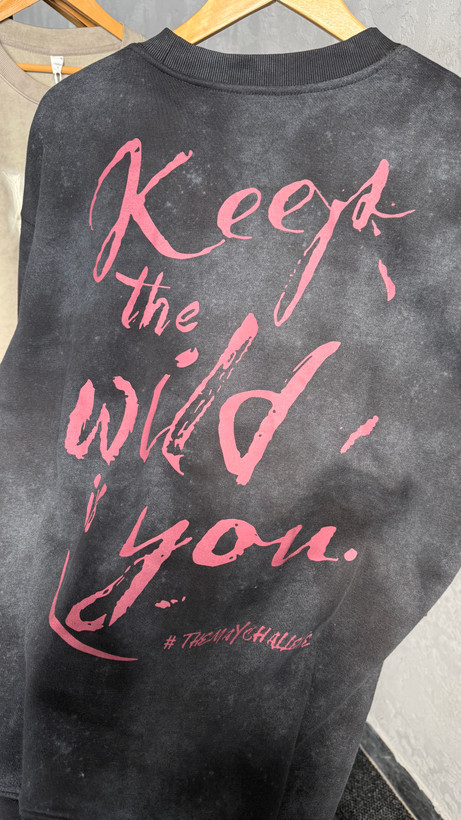 Keep
the
wild
you.